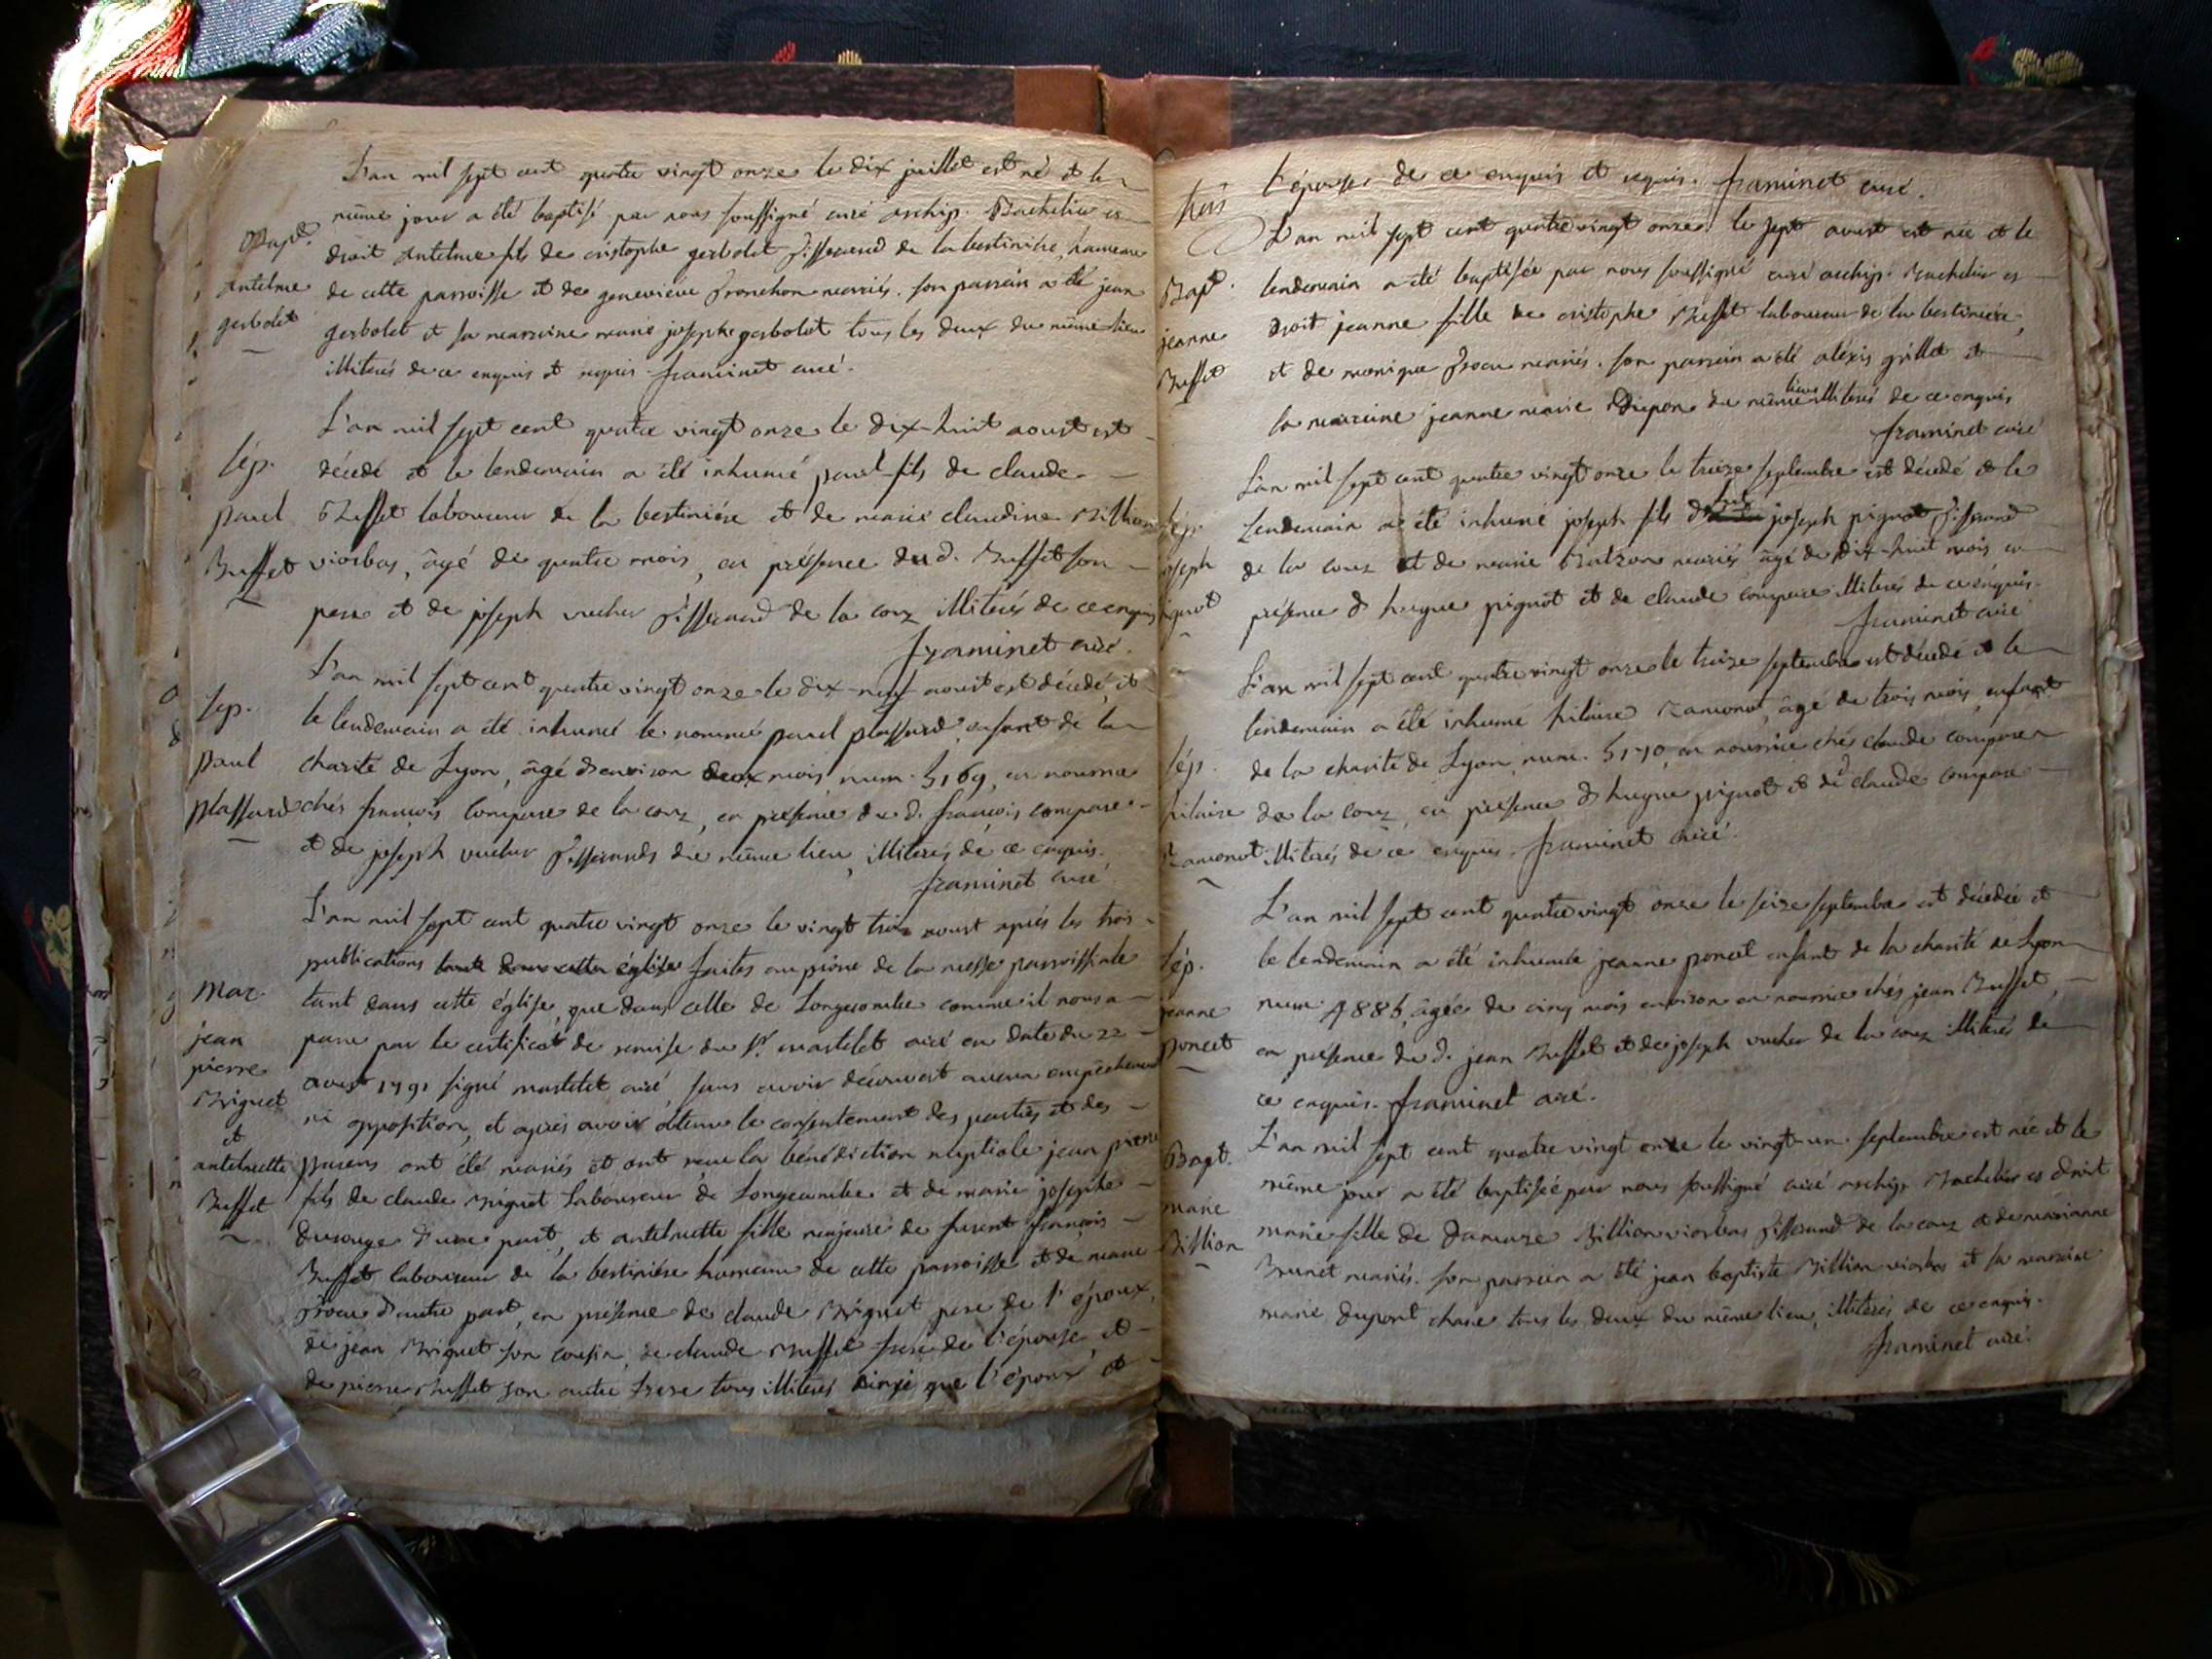 L'an mil sept cent quatre vingt onze le dix juillet est né et le
même jour a été baptisé par nous soussigné curé archip. Bachelier es
droit antelme fils de cristophe gerbolet tisserand de la bertinière, hameau
de cette parroisse et de genevieve tronchon mariés. son parrain a été jean
gerbolet et sa marraine marie josephe gerbolet tous les deux du même lieu
illiterés de ce enquis et requis framinet curé.
Bapt.
antelme
gerbolet
L'an mil sept cent quatre vingt onze le dix-huit aoust est
décédé et le lendemain a été inhumé paul fils de claude
Buffet laboureur de la bertinière et de marie claudine Billion
viorbas, âgé de quatre mois, en présence du d. Buffet son
pere et de joseph vucher tisserand de la couz illiterés de ce enquis
framinet curé.
sép.
paul
Buffet
L'an mil sept cent quatre vingt onze le dix-neuf aoust est décédé, et
le lendemain a été inhumé le nommé paul plassard enfant de la
charité de Lyon, âgé d'environ deux mois num. 5169, en nourrice
chés françois compare de la couz, en présence du d. françois compare
et de joseph vucher tisserands du même lieu, illiterés de ce enquis.
framinet curé
sep.
paul
plassard
L'an mil sept cent quatre vingt onze le vingt trois aoust après les trois
publications faites au prône de la messe parroissiale
tant dans cette église, que dans celle de Longecombe comme il nous a
paru par le certificat de remise du Sr. martelet curé en date du 22
aoust 1791 signé martelet curé, sans avoir découvert aucun empêchement
ni opposition, et après avoir obtenu le consentement des parties et des
parens ont été mariés et ont reçu la bénédiction nuptiale jean pierre
fils de claude Briguet laboureur de Longecombe et de marie josephe
d'une part, et antelmette fille majeure de furent françois
Buffet laboureur de la bertinière hameau de cette parroisse et de marie
d'autre part, en présence de claude Briguet pere de l'époux,
de jean Briguet son cousin, de claude Buffet frere de l'épouse, et
de pierre Buffet son autre frere tous illiterés ainsi que l'époux et
mar.
jean
pierre
Briguet
et
antelmette
Buffet
trois
l'épouse de ce enquis et requis. framinet curé.
L'an mil sept cent quatre vingt onze le sept aoust est née et le
lendemain a été baptisée par nous soussigné curé archip. Bachelier es
droit jeanne fille de cristophe Buffet laboureur de la bertinière,
et de monique mariés. son parrain a été aléxis grillet et
la marraine jeanne marie du même lieu illiterés de ce enquis
framinet curé
Bapt.
jeanne
Buffet
L'an mil sept cent quatre vingt onze le treize septembre est décédé et le
lendemain a été inhumé joseph fils joseph pignot tisserand
de la couz et de marie mariés âgé de dix-huit mois en
présence d hugue pignot et de claude compare illiterés de ce enquis.
framinet curé
sép.
joseph
pignot
L'an mil sept cent quatre vingt onze le treize septembre est décédé et le
lendemain a été inhumé hilaire Ramonot, âgé de trois mois, enfant
de la charité de Lyon num. 5170, en nourrice chés claude compare
de la couz, en présence d hugue pignot et de claude compare
illiterés de ce enquis. framinet curé.
sép.
hilaire
Ramonot
L'an mil sept cent quatre vingt onze le seize septembre est décédée et
le lendemain a été inhumée jeanne poncet enfant de la charité de Lyon
num. 4885, âgée de cinq mois environ en nourrice chés jean Buffet,
en présence du d. jean Buffet et de joseph vucher de la couz illiterés de
ce enquis. framinet curé.
sép.
jeanne
poncet
L'an mil sept cent quatre vingt onze le vingt-un septembre est née et le
même jour a été baptisée par nous soussigné curé archip. Bachelier es droit
marie fille de Billion viorbas tisserand de la couz et de marianne
Brunet mariés. son parrain a été jean baptiste Billion viorbas et sa marraine
marie dupont tous les deux du même lieu, illiterés de ce enquis.
framinet curé.
Bapt.
marie
Billion